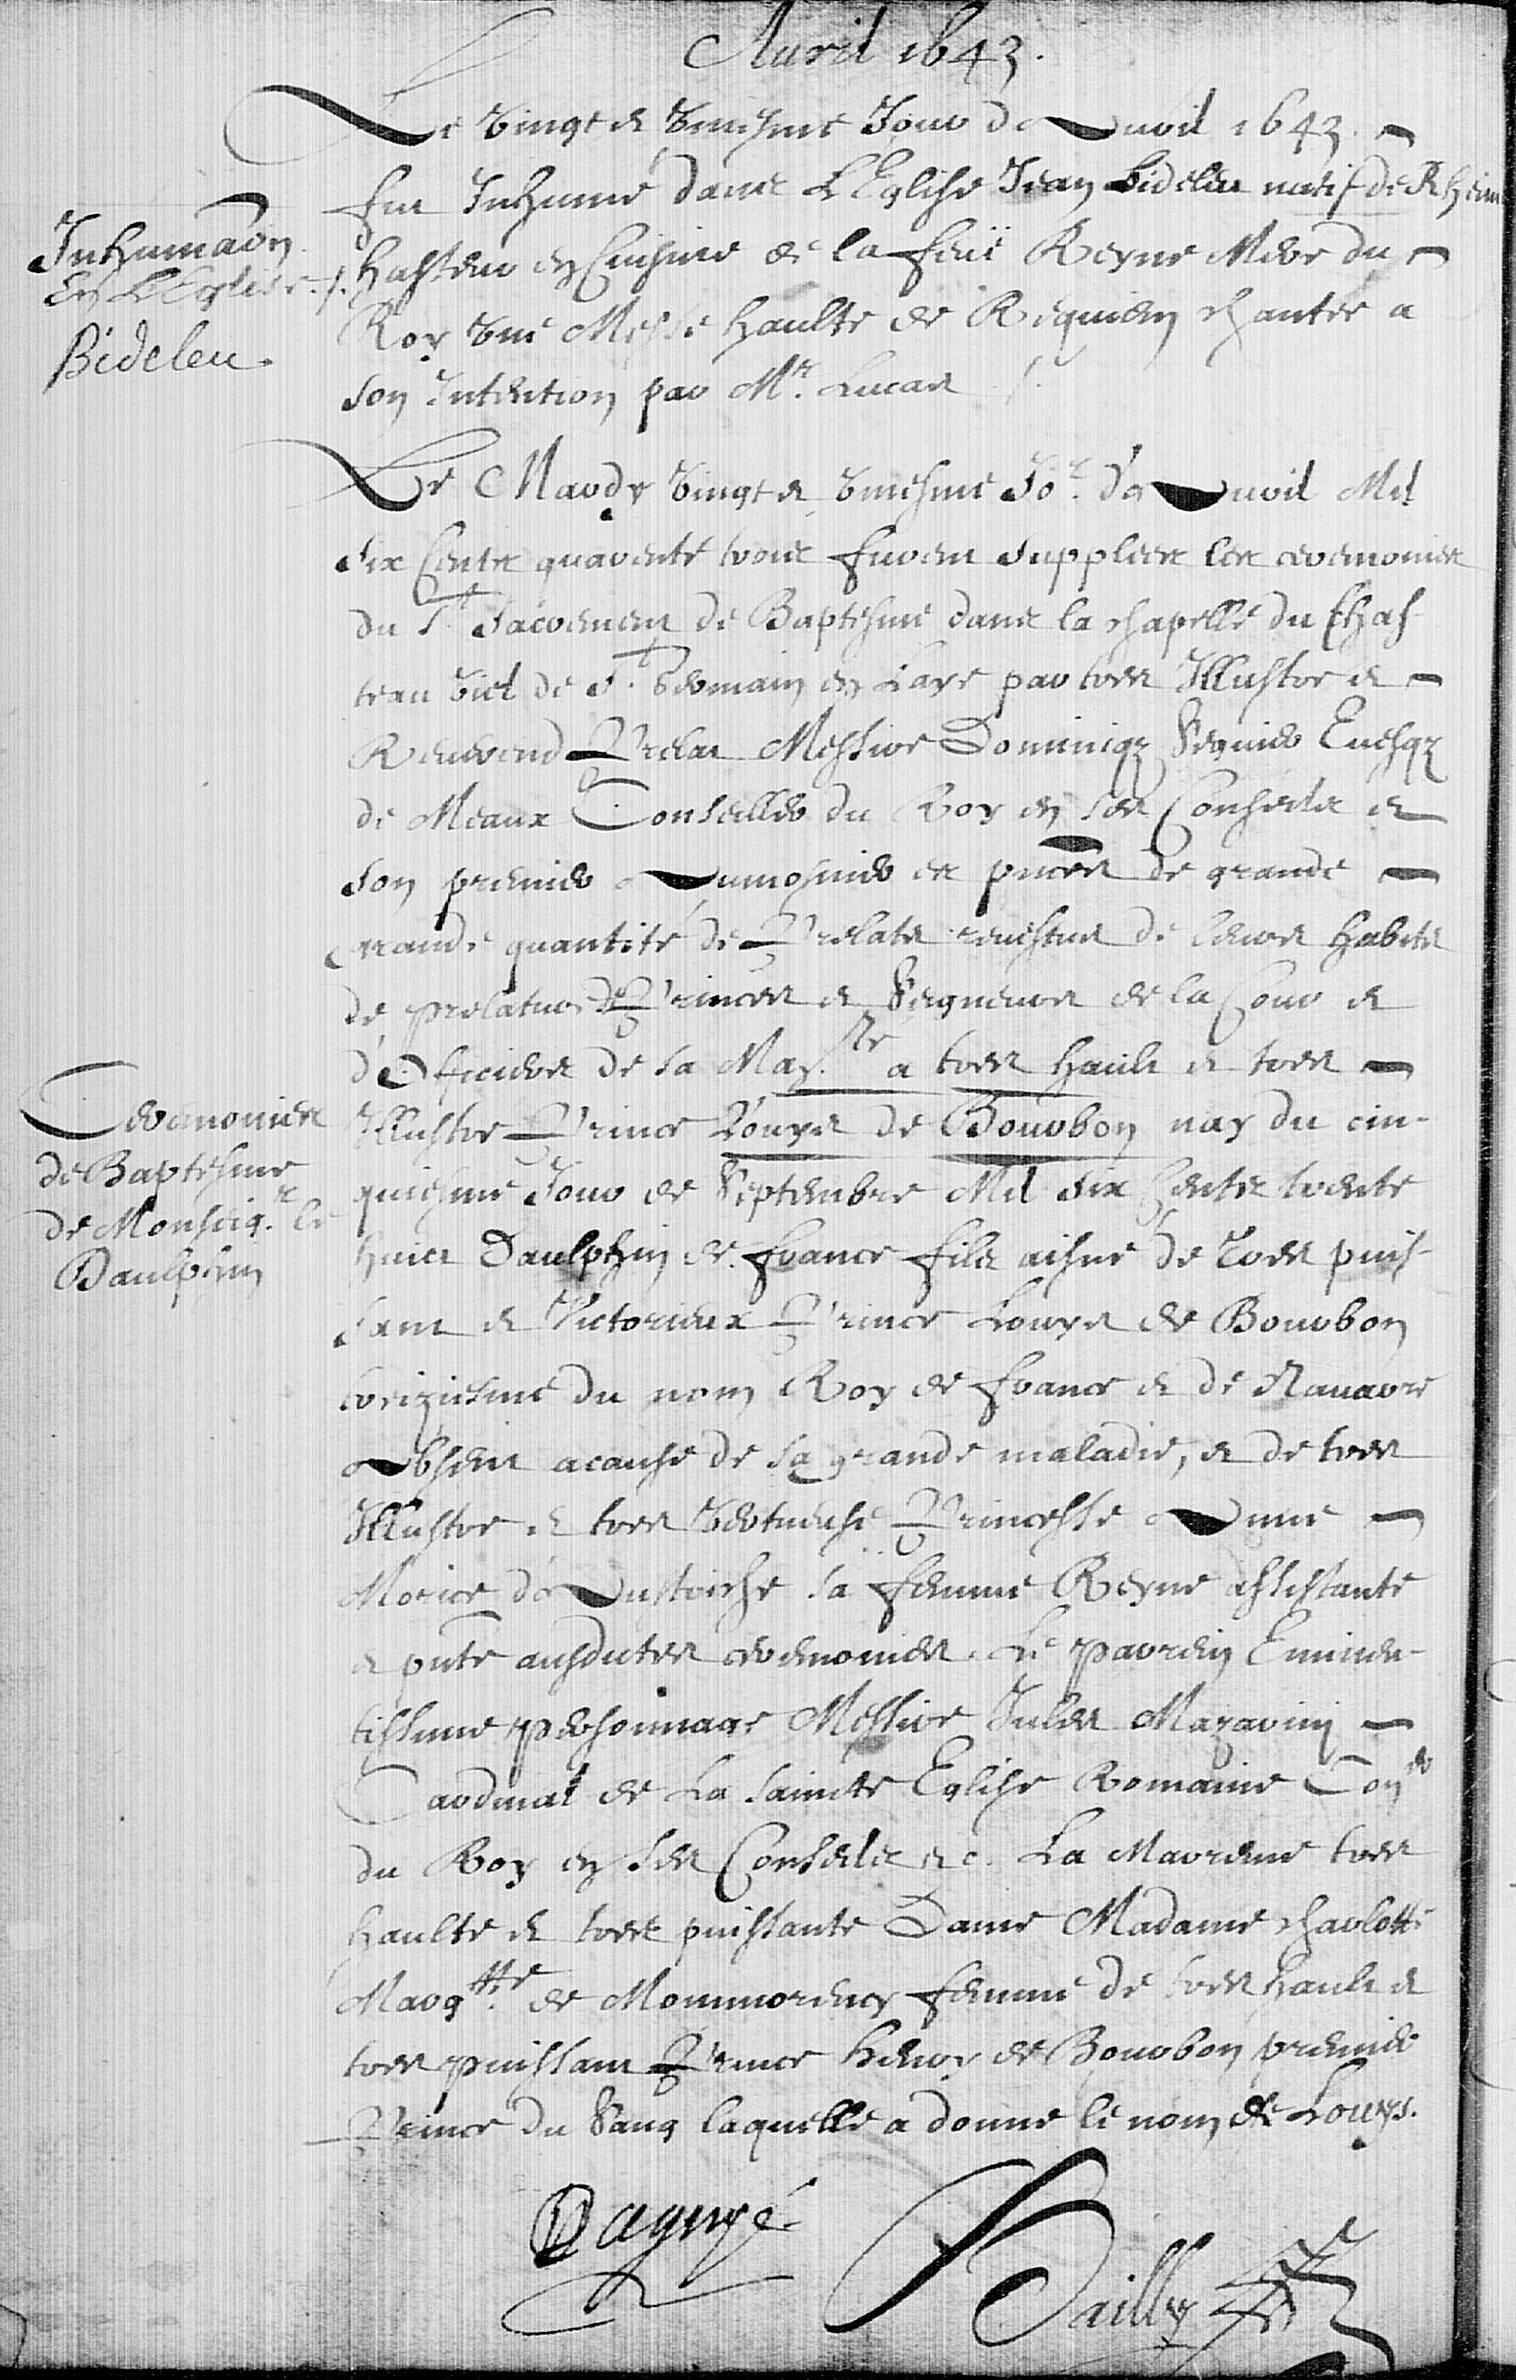 Auril 1643.
Le vingt et vniesme Jour d'Auril 1643.
fut Inhumé dans L'Eglise Jean Bideleu natif de Rheims
Inhumaõn
en L'Eglise
Bideleu
Hasteur en Cuisine de la feüe Reyne Mere du
Roy vne Messe haulte de Requiem chantée a
son Intention par Mr. Lucas
Le Mardy vingt et vniesme Jor. d'Auril Mil
six Cents quarente trois furent suppliees les ceremonies
du St. Sacrement de Baptesme dans la chapelle du Chas-
teau viel de St. Germain en Laye par tres Illustre et
Reuerend Prelat Messire Dominiq3 Seguier Euesq3
de Meaux Conseiller du Roy en ses Conseils et
son premier Aumosnier en pñce de grande
grande quantité de Prelats reuestus de leurs habits
de prelature de Princes et Seigneurs de la Cour et
d'Officiers de sa Ma.té a tres hault et tres
Ceremonies
de Baptesme
de Monseig.r le
Daulphin
Illustre Prince Louys de Bourbon nay du cin-
quiesme Jour de Septembre Mil six Cents trente
huict Daulphin de france fils aisné de Tres puis-
sant et Victorieux Prince Louys de Bourbon
treiziesme du nom Roy de france et de Nauarre
Absent acause de sa grande maladie, et de tres
Illustre et tres vertueuse Princesse Anne
Morice d'Austriche sa femme Reyne assistante
et pñte ausdites ceremonies. Le parein Eminen-
tissime personnage Messire Jules Mazarini
Cardinal de La saincte Eglise Romaine Con.er
du Roy en ses Conseils &c. La Mareine tres
haulte et tres puissante Dame Madame charlotte
Marg.tte de Mommorency femme de tres hault et
tres puissant Prince henry de Bourbon premier
Prince du Sang laquelle a donné le nom de Louys.
Bailly